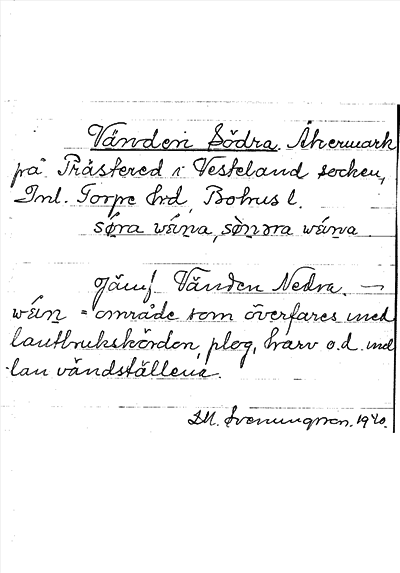 Vänden Södra. Åkermark
på Prästered i Vesteland socken,
Inl. Torpe hd, Bohus l.
sø̀ra wéṇa, sø̀ṇəra wéṇa.
Jämf. Vänden Nedra. —
wéṇ = område som överfares med
lantbruksKördon, plog, harv o.d. mel
lan vändställena.
Svenungsson. 1940.